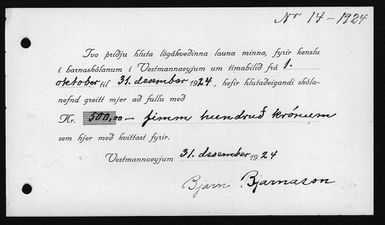 Nr 14-1924
Tvo þriðju hluta lögákveðinna launa minna, fyrir kenslu
í barnaskólanum í Vestmannaeyjum um tímabilið frá 1.
oktober til 31. desember 1924, hefir hlutaðeigandi skóla-
nefnd greitt mjer að fullu með
Kr. 500,00 — fimm hundruð krónum
sem hjer með kvittast fyrir.
Vestmannaeyjum 31. desember 1924
Bjarni Bjarnason